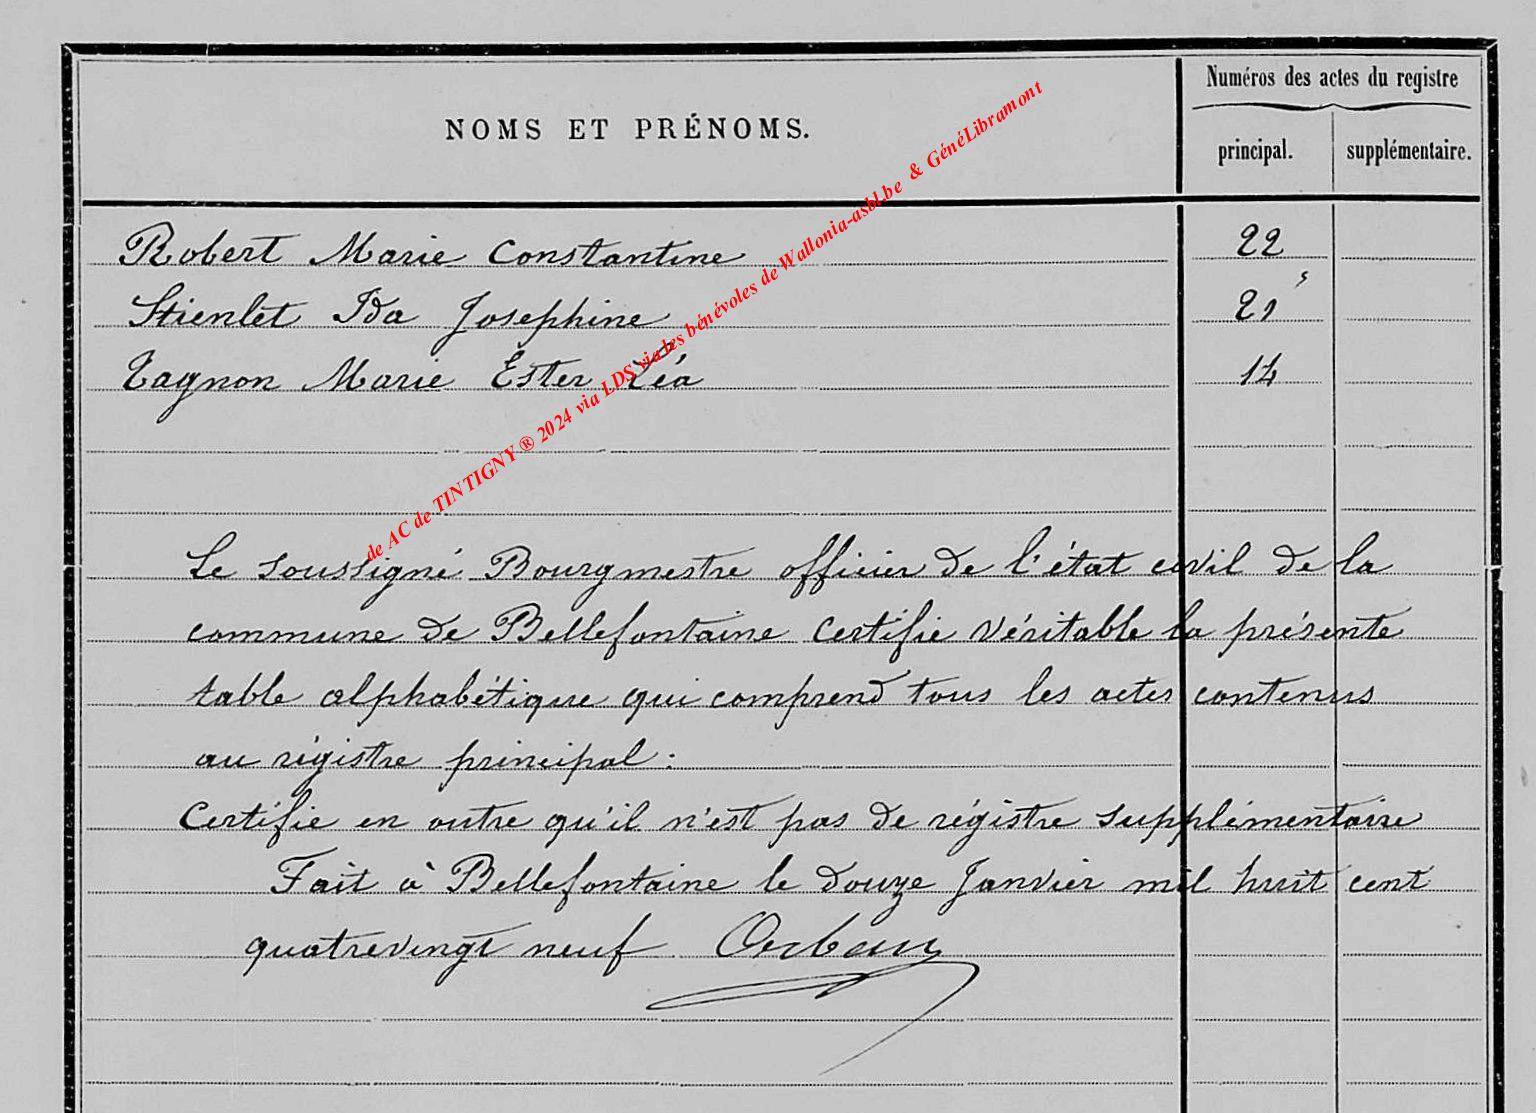 Numéros des actes du registre
NOMS ET PRÉNOMS.
principal. supplémentaire.
Robert Marie Constantine 22
Stienlet Ida Josephine 21
Tagnon Marie Ester Léa 14
de AC de TINTIGNY ® 2024 via LDS via les bénévoles de Wallonia-asbl.be & GénéLibramont
Le soussigné Bourgmestre officier de l'état civil de la
commune de Bellefontaine certifie véritable la présente
table alphabétique qui comprend tous les actes contenus
au régistre principal :
Certifie en outre qu'il n'est pas de régistre supplémentaire
Fait à Bellefontaine le douze Janvier mil huit cent
quatrevingt neuf Orban